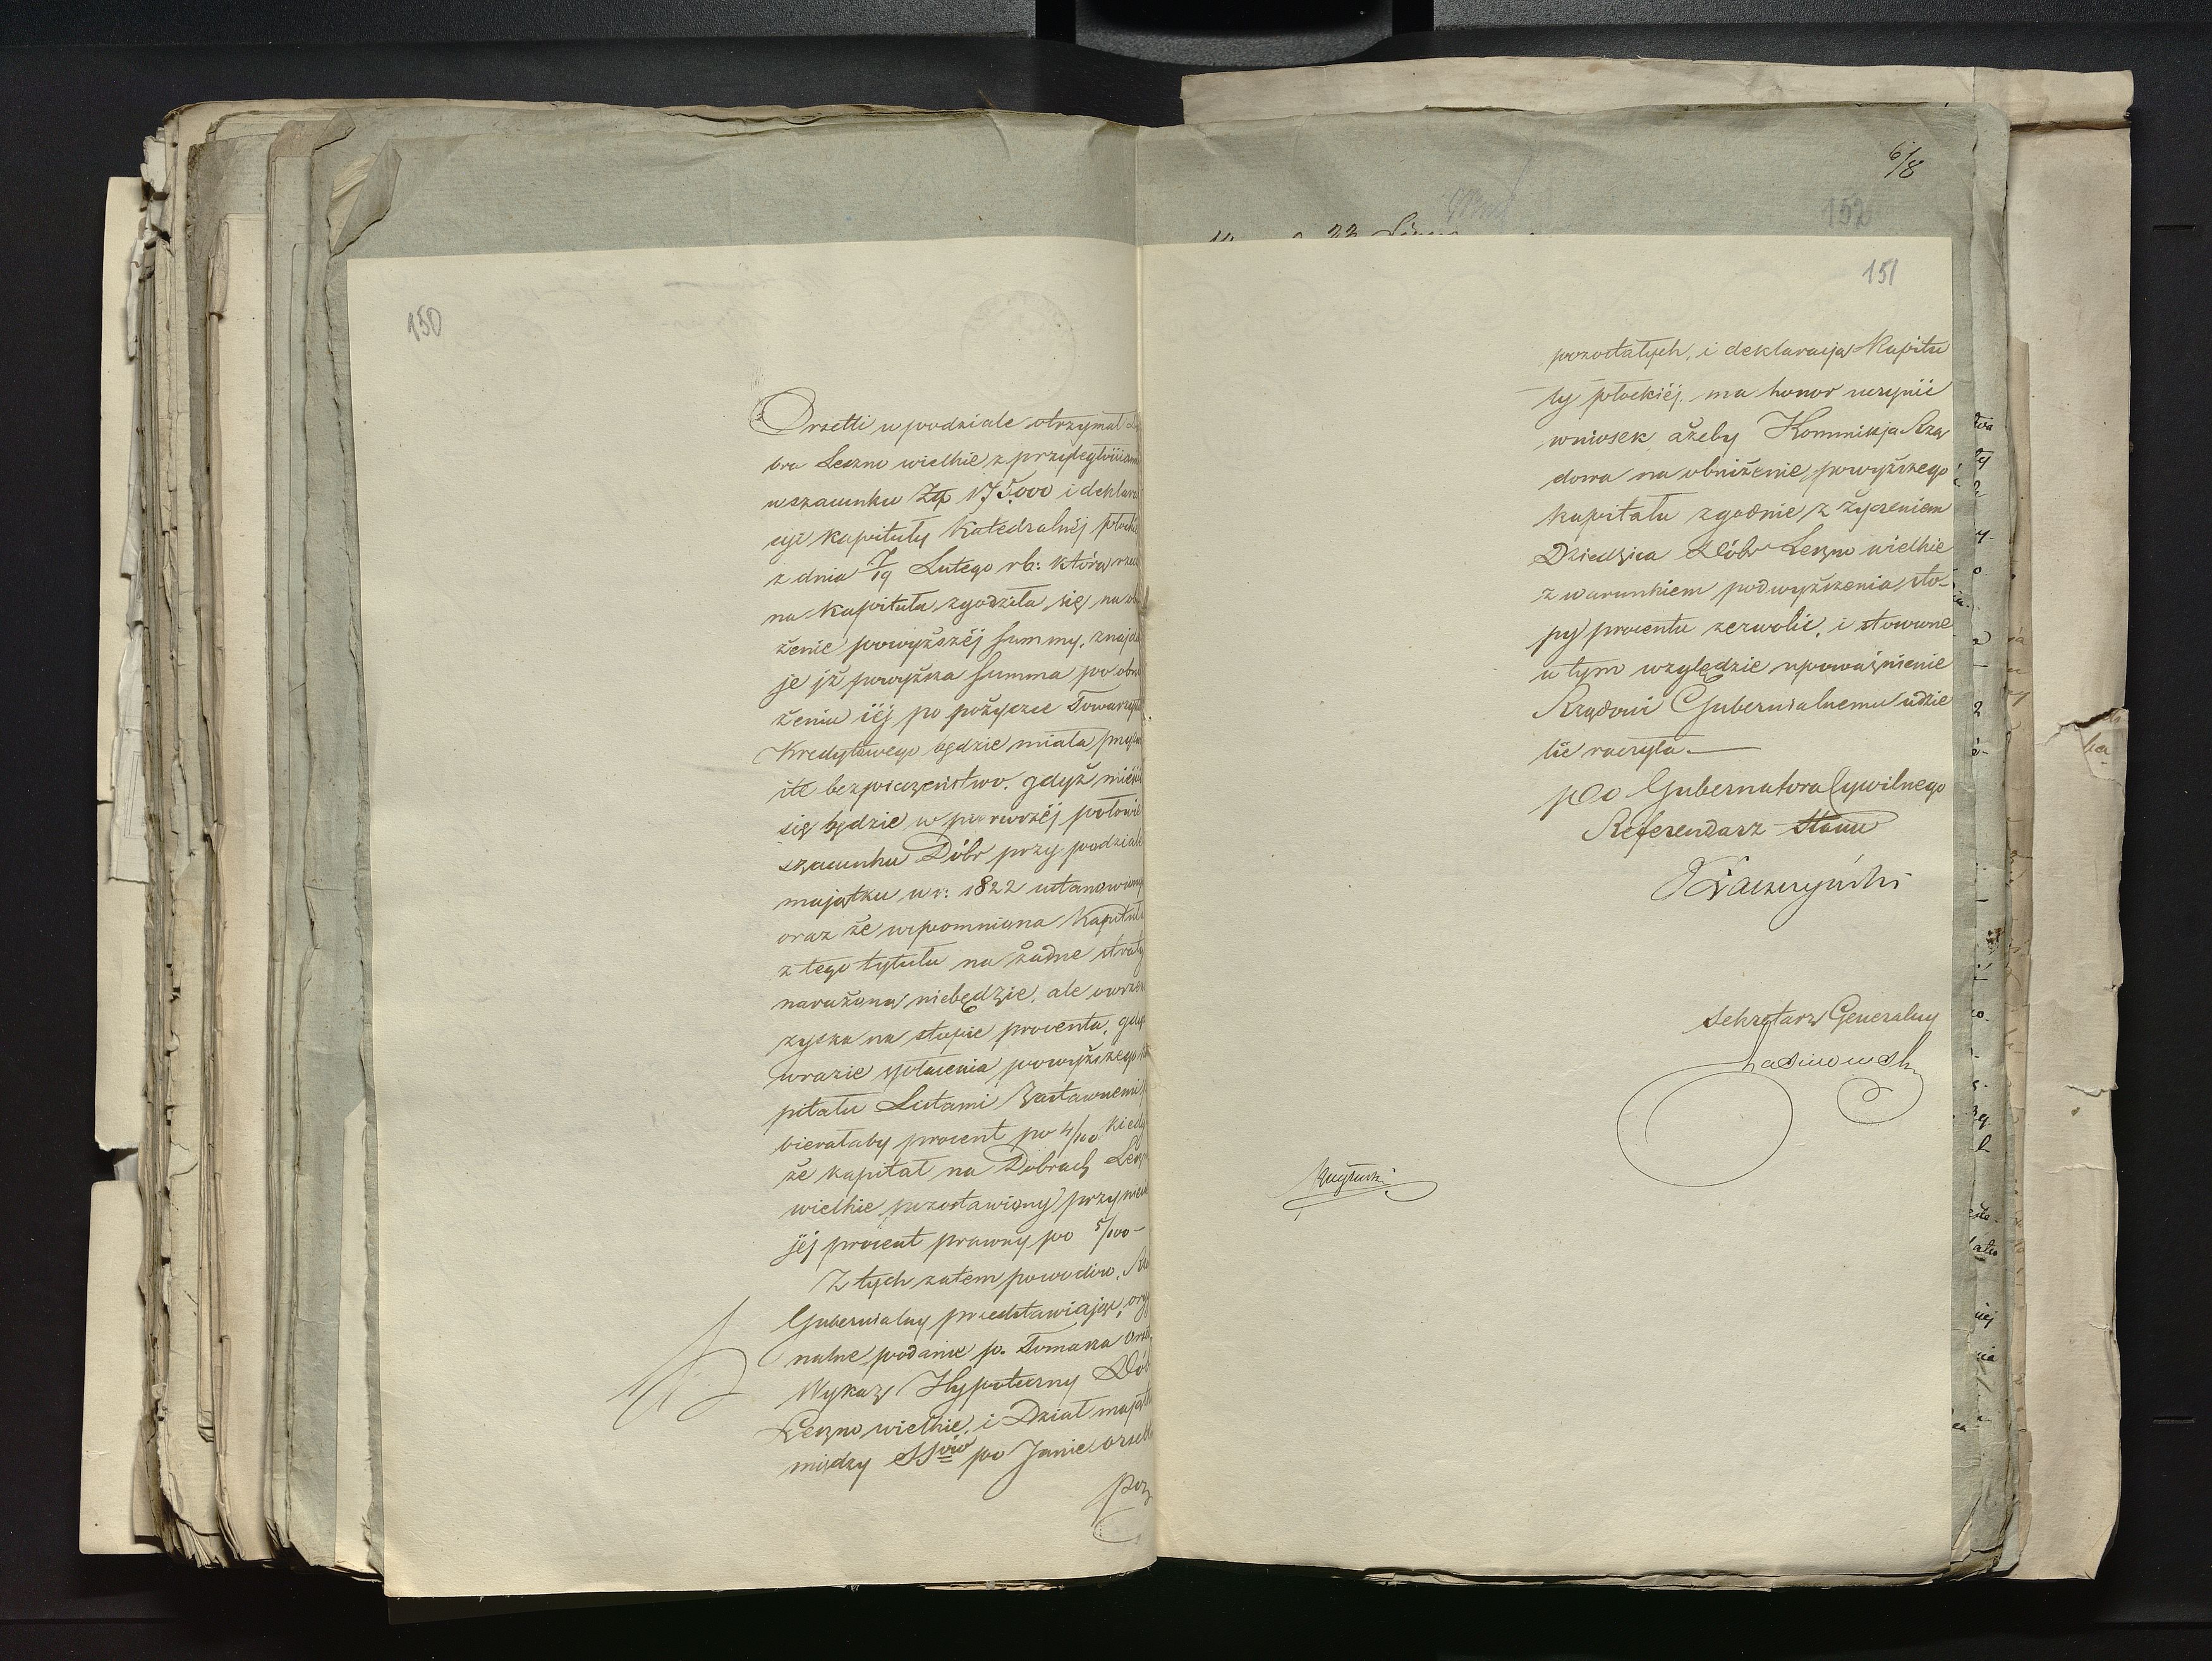 150
Orsetti w podziale otrzymał
bra Leszno wielkie z przyległościami
w szacunku Zł 175,000 i deklara
cyi Kapituły Katedralnéj płock
z dnia 7/19 Lutego rb: którą rze
na Kapituła zgodziła się na
żenie powyższéj summy, znajdu
je iż powyższa summa po obni
żeniu iéj po pożyczce Towarzyst
Kredytowego będzie miała przyz
ite bezpieczeństwo, gdyż mieści
się będzie w pierwszéj połowie
szacunku Dóbr przy podziale
majątku w r: 1822 ustanowiony
oraz że wspomniona Kapituła
z tego tytułu na żadne straty
narażoną niebędzie, ale owszem
zyska na stopie procentu, gdy
w razie spłacenia powyższego
pitału Listami Zastawnemi
bierałaby procent po 4/100 kiedy
że kapitał na Dobrach Lesz
wielkie pozostawiony przynies
jéj procent prawny po 5/100 –
Z tych zatem powodów, Rz
Gubernialny przedstawiając, ory
nalne podanie p. Tomasza Orset
Wykaz Hypoteczny Dób
Leszno wielkie, i Dział mająt
między SSrów po Janie Orsett
poz
6/8
152
151
pozostałych, i deklaracją Kapitu
ły płockiéj, ma honor uczynić
wniosek ażeby Kommissja Rzą
dowa na obniżenie powyższego
kapitału zgodnie z życzeniem
Dziedzica Dóbr Leszno wielkie
z warunkiem podwyższenia sto-
py procentu zezwolić, i stosowne
w tym względzie upoważnienie
Rządowi Gubernialnemu udzie
lić raczyła.—
p.o. Gubernatora Cywilnego
Referendarz Stanu
Sekretarz Generalny